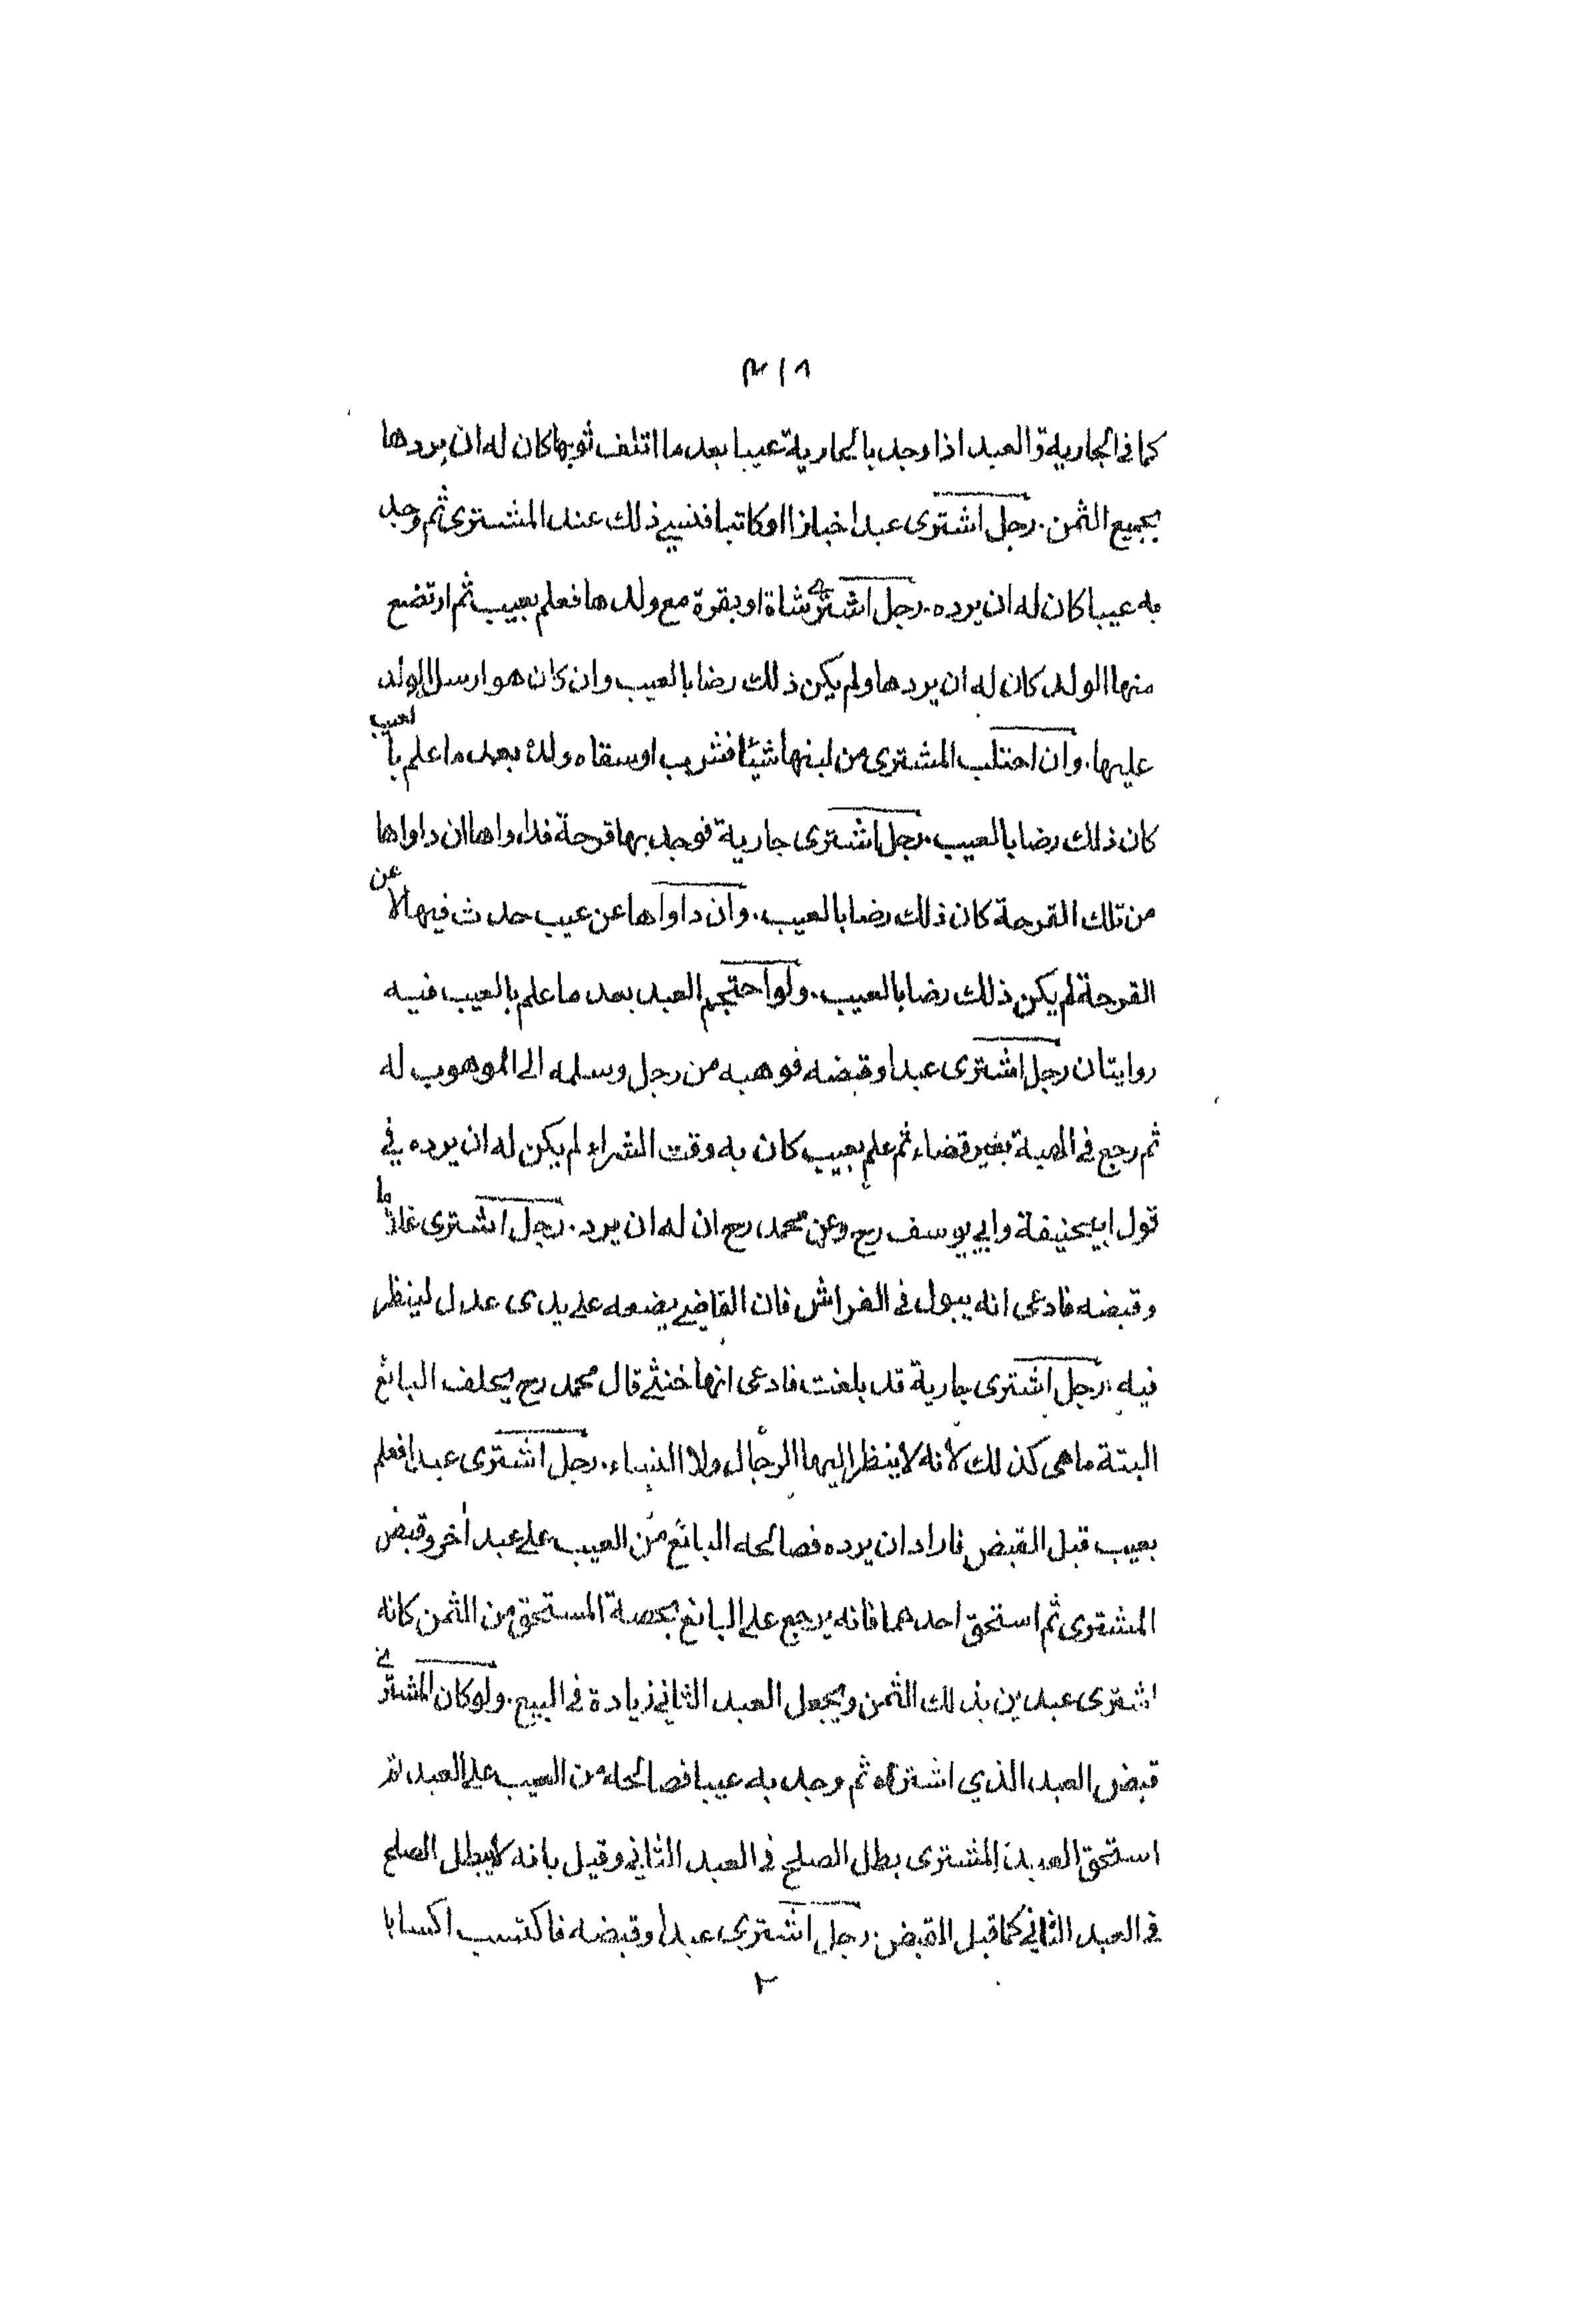 ٣١٨
كما فى الجارية و العبد اذا وجد بالجارية عيبا بعد ما اتلف ثوبها كان له ان يردها
بجميع الثمن. رجل اشترى عبدا خبازا او كاتبا فنسي ذلك عند المشترى ثم وجد
به عيبا كان له ان يرده. رجل اشترى شاة او بقرة مع ولدها فعلم بعيب ثم ارتضع
منها الولد كان له ان يردها ولم يكن ذلك رضا بالعيب وان كان هو ارسل الولد
عليها. وان احتلب المشترى من لبنها شيئا فشرب او سقاه ولدا بعد ما علم بالعيب
كان ذلك رضا بالعيب. رجل اشترى جارية فوجد بها قرحة فداواها ان داواها
من تلك القرحة كان ذلك رضا بالعيب. وان داواها عن عيب حدث فيها لا عن
القرحة لم يكن ذلك رضا بالعيب. ولو احتجم العبد بعد ما علم بالعيب فيه
روايتان رجل اشترى عبدا وقبضه فوهبه من رجل وسلمه الى الموهوب له
ثم رجع فى الهبة بغير قضاء ثم علم بعيب كان به وقت الشراء لم يكن له ان يرده في
قول ابيحنيفة وابي يوسف رح وعن محمد رح ان له ان يرد. رجل اشترى غلاما
وقبضه فادعى انه يبول فى الفراش فان القاضي يضعه على يدى عدل لينظر
فيه. رجل اشترى جارية قد بلغت فادعى انها خنثى قال محمد رح يحلف البائع
البتة ما هى كذلك لانه لا ينظر اليها الرجال ولا النساء. رجل اشترى عبدا فعلم
بعيب قبل القبض فاراد ان يرده فصالحه البائع من العيب على عبد اخر وقبض
المشترى ثم استحق احدهما فانه يرجع على البائع بحصة المستحق من الثمن كانه
اشترى عبدين بذلك الثمن ويجعل العبد الثاني زيادة فى البيع. ولو كان المشترى
قبض العبد الذي اشتراه ثم وجد به عيبا فصالحه من العيب على العبد ثم
استحق العبد المشترى بطل الصلح فى العبد الثاني وقيل بانه لا يبطل الصلح
فى العبد الثاني كما قبل القبض. رجل اشترى عبدا وقبضه فاكتسب اكسابا
٢